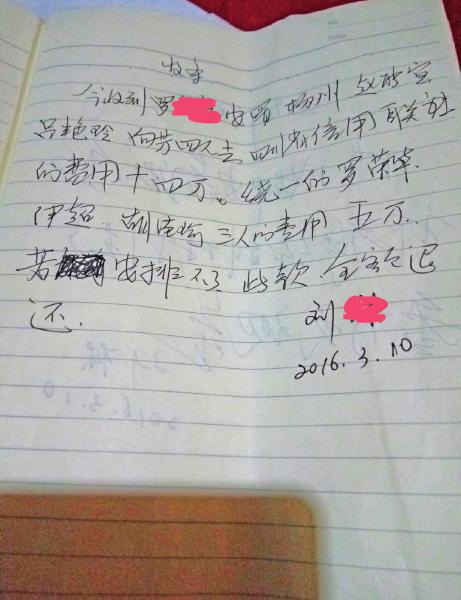 No.
Date.
收条
今收到罗 安置 杨州
吕艳玲 四人去四川农信用联社
的费用十四万。统一的罗荣华
伊超 胡 三人的费用五万.
若 安排不了 此款 全额退
还.
刘
2016.3.10